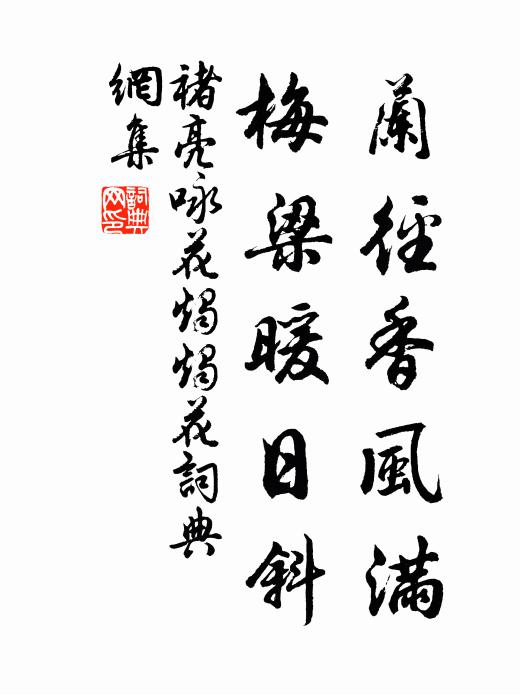 蘭徑香風滿
梅梁暖日斜
褚亮咏花燭燭花詞典
網集
詞典網印